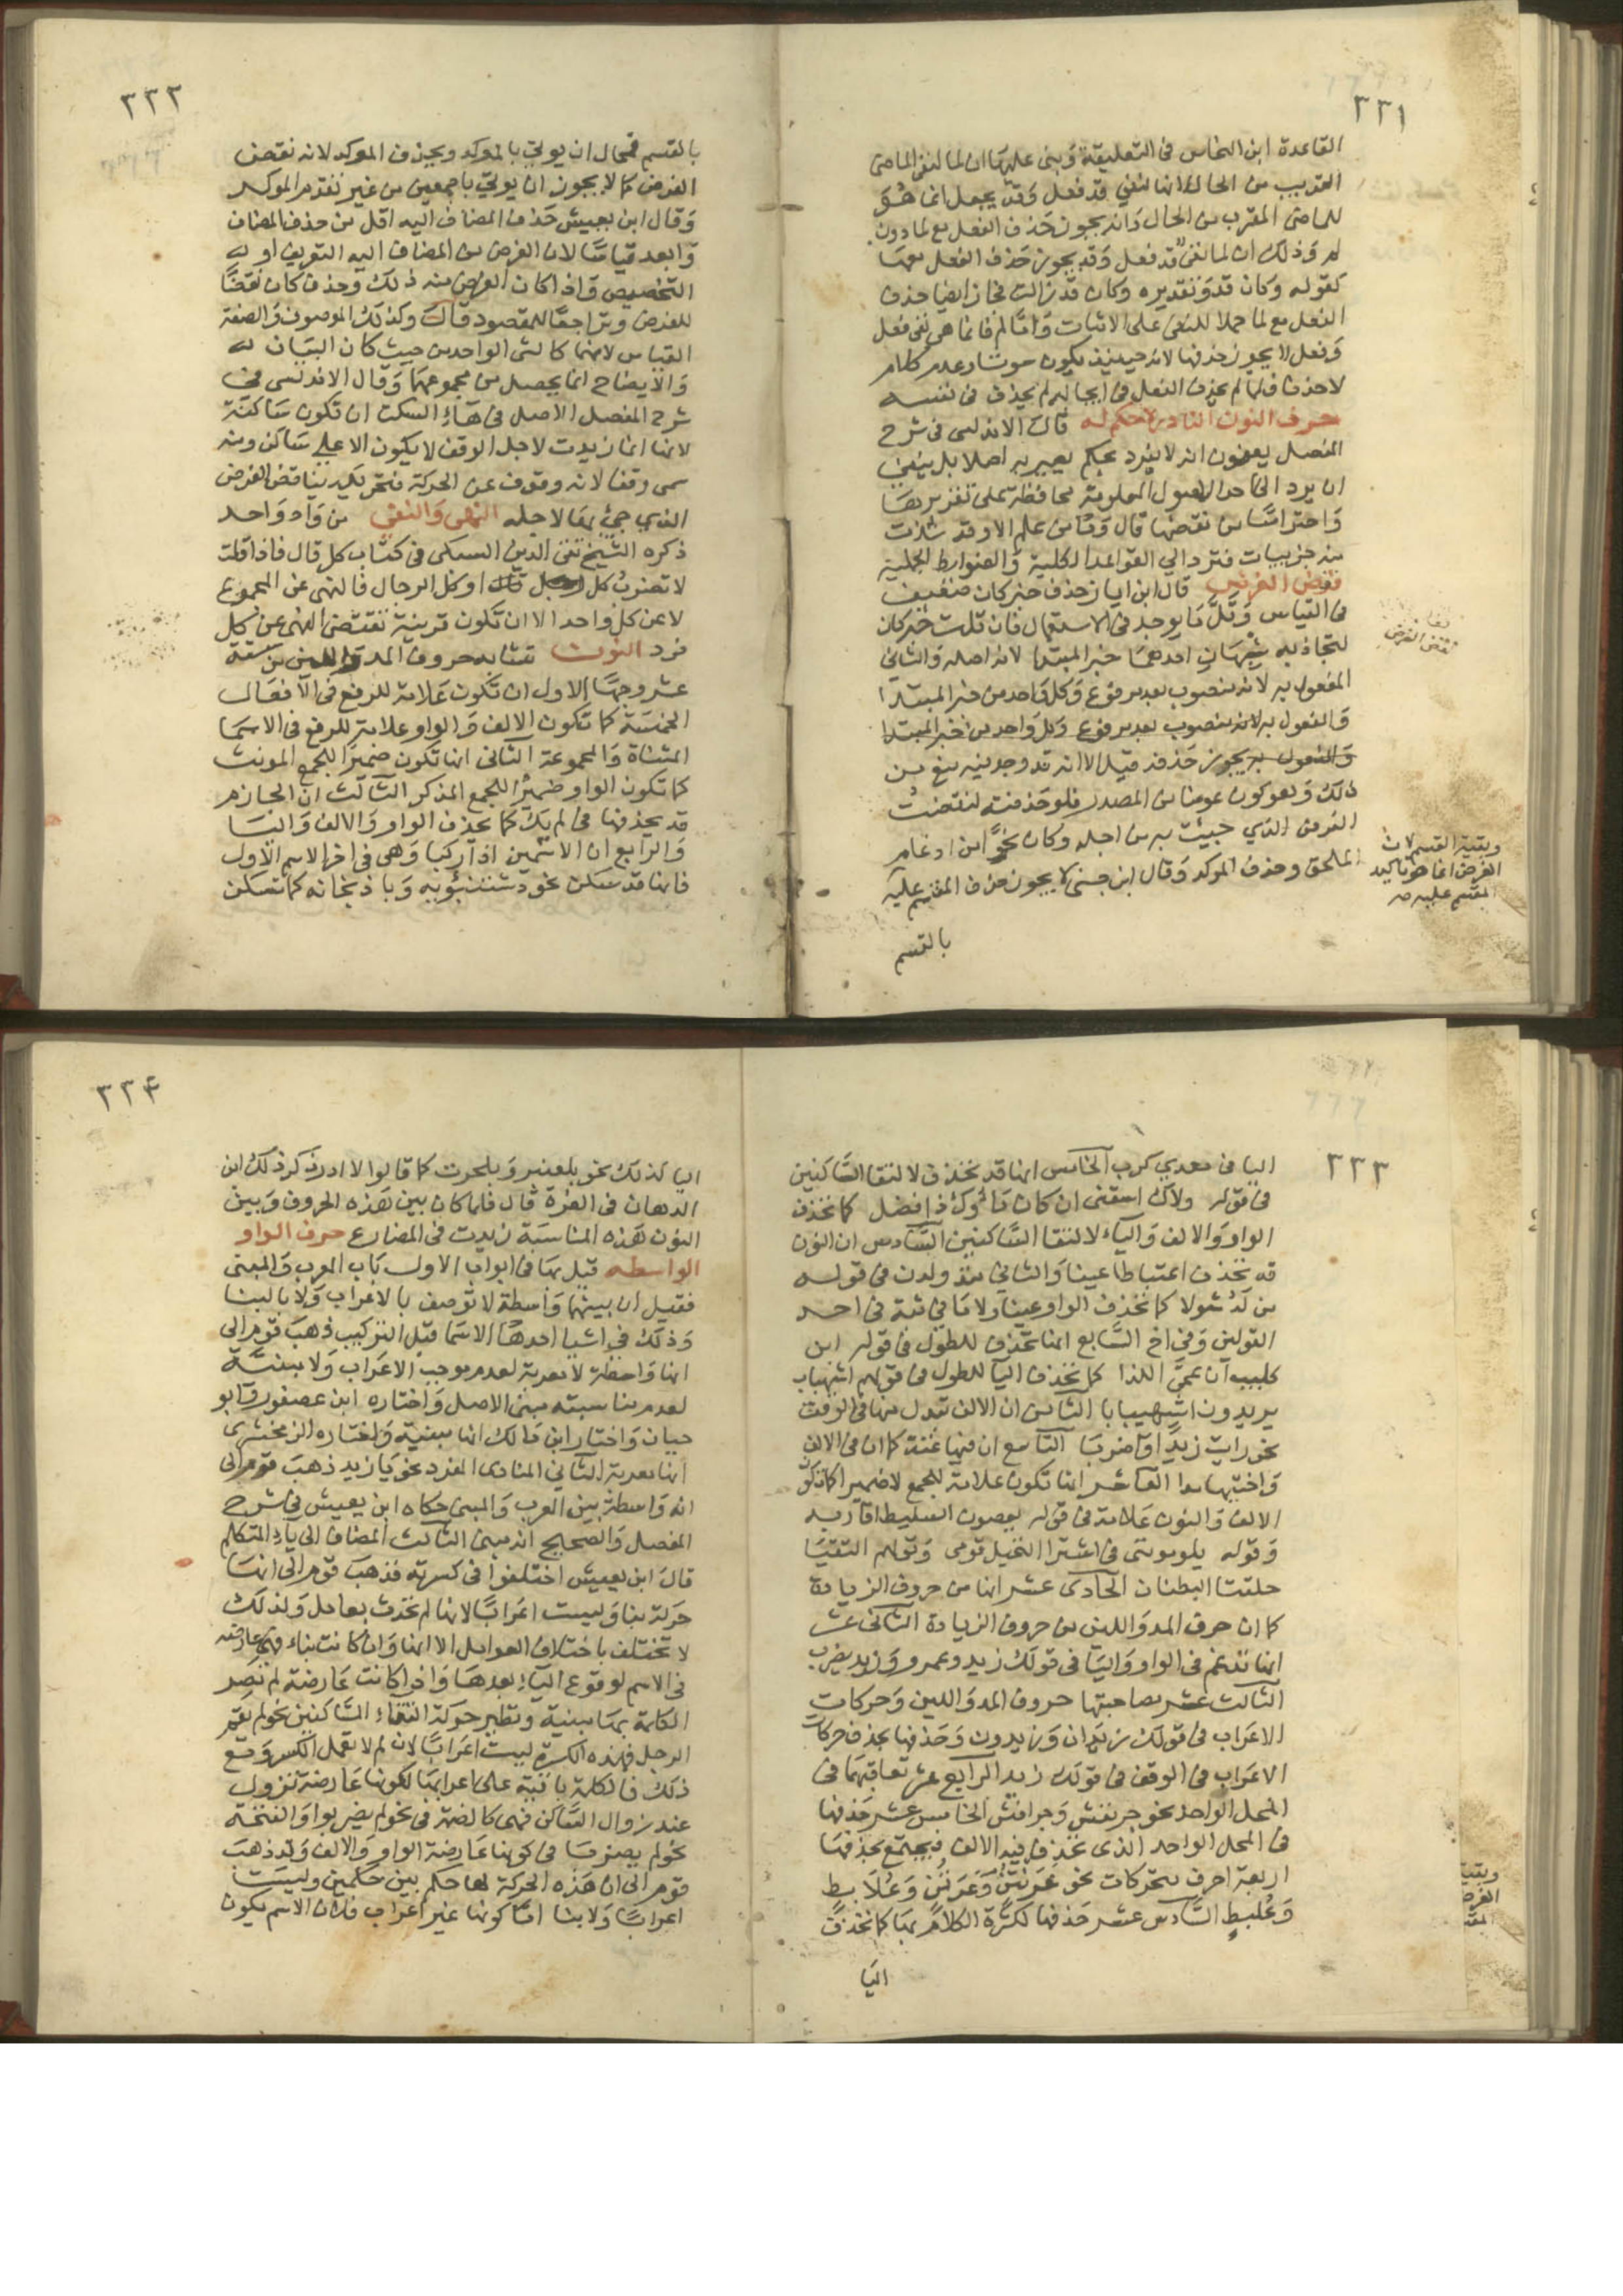 ٣٣١
القاعدة ابن النحاس في التعليقة وبنى عليها ان لما لنفي الماضي
القريب من الحال انها لنفي قد فعل وقد يجعل انما هو
للماضي المقرب من الحال وانه يجوز حذف الفعل مع لما دون
لم وذلك ان لما نفي قد فعل وقد يجوز حذف الفعل معها
كقوله وكان قد وتقديره وكان قد زالت فجاز ايضا حذف
الفعل مع لما حملا للنفي على الاثبات واما لم فانما هي نفي فعل
وفعل لا يجوز حذفها لانه حينئذ يكون سكوتا وعدم كلام
لا حذفا فلما لم يحذف الفعل في ايجابه لم يحذف في نفيه
حرف النون النادر لا حكم له قال الاندلسي في شرح
المفصل يعنون انه لا يفرد بحكم يصير به اصلا بل ينبغي
ان يرد الى احد الاصول المعلومة محافظة على تقريرها
واحترازا من نقضها قال وما من علم الا وقد شذت
منه جزييات فترد الى القواعد الكلية والضوابط الجملية
نقض الغرض قال ابن اياز حذف خبر كان ضعيف
في القياس وقل ما يوجد في الاستعمال فان قلت خبر كان
يتجاذبه شبهان احدهما خبر المبتدا لانه اصله والثاني
المفعول به لانه منصوب بعد مرفوع وكل واحد من خبر المبتدا
والمفعول به لانه منصوب بعد مرفوع وكل واحد من خبر المبتدا
والمفعول به يجوز حذفه قيل الا انه قد وجد فيه منع من
ذلك وهو كونه عوضا من المصدر فلو حذفته لنقضت
الغرض الذي جيئت به من اجله وكان نحوا من ادغام
الملحق وحذف الموكد وقال ابن جني لا يجوز حذف المقسم عليه
بالقسم
نقض الغرض
وبقية القسم لان
الغرض انما هو تاكيد
المقسم عليه صح
٣٣٢
بالقسم فمحال ان يوتى بالموكد ويحذف الموكد لانه نقض
الغرض كما لا يجوز ان يوتى باجمعين من غير تقدم الموكد
وقال ابن يعيش حذف المضاف اليه اقل من حذف المضاف
وابعد قياسا لان الغرض من المضاف اليه التعريف او
التخصيص واذا كان الغرض منه ذلك وحذف كان نقضا
للغرض وتراجعا للمقصود قال وكذلك الموصوف والصفة
القياس لانهما كالشي الواحد من حيث كان البيان
والايضاح انما يحصل من مجموعهما وقال الاندلسي في
شرح المفصل الاصل في هاء السكت ان تكون ساكنة
لانها انما زيدت لاجل الوقف لا يكون الا على ساكن ومنه
سمي وقفا لانه وقوف عن الحركة فتحريكه يناقض الغرض
الذي جيء بها لاجله النهى والنفى من واد واحد
ذكره الشيخ تقي الدين السبكي في كتاب كل قال فاذا قلت
لا تضرب كل رجل او كل الرجال فالنهي عن المجموع
لا عن كل واحد الا ان تكون قرينة تقتضي النهي عن كل
فرد النون تشابه حروف المد واللين من ستة
عشر وجها الاول ان تكون علامة للرفع في الافعال
الخمسة كما تكون الالف والواو علامة للرفع في الاسما
المثناة والمجموعة الثاني انها تكون ضميرا للجمع المونث
كما تكون الواو ضميرا للجمع المذكر الثالث ان الجازم
قد يحذفها في لم يك كما يحذف الواو والالف واليا
والرابع ان الاسمين اذا ركبا وهي في اخر الاسم الاول
فانها قد تسكن نحو دستنبويه وباذنجانه كما تسكن
٣٣٣
اليا في معدي كرب الخامس انها قد تحذف لالتقا الساكنين
في قوله ولاك اسقني ان كان ماؤك ذا فضل كما تحذف
الواو والالف والياء لالتقا الساكنين السادس ان النون
قد تحذف اعتباطا عينا والثاني منذ ولدن في قوله
من لد شولا كما تحذف الواو عينا ولاما في ثبة في احد
القولين وفي اخ السابع انها تحذف للطول في قوله ابن
كليب ان عمي اللذا كما تحذف اليا للطول في قولهم اشهباب
يريدون اشهيبابا الثامن ان الالف تبدل منها في الوقف
نحو رايت زيدا واضربا التاسع ان فيها غنة كما ان في الالف
واختيها مدا العاشر انها تكون علامة للجمع لا ضميرا كما تكون
الالف والنون علامة في قوله يعصرن السليط اقاربه
وقوله يلومونني في اشترا النخيل قومي وقولهم التقتا
حلقتا البطان الحادي عشر انها من حروف الزيادة
كما ان حرف المد واللين من حروف الزيادة الثاني عشر
انها تدغم في الواو واليا في قولك زيد وعمرو وزيد يضرب
الثالث عشر مصاحبتها حروف المد واللين وحركات
الاعراب في قولك زيدان وزيدون وحذفها بحذف حركات
الاعراب في الوقف في قولك زيد الرابع عشر تعاقبهما في
المحل الواحد نحو جرنفش وجرافش الخامس عشر حذفها
في المحل الواحد الذي تحذف فيه الالف فيجتمع بحذفها
اربعة احرف متحركات نحو عرنتن وعرتن وعلابط
وعلبط السادس عشر حذفها لكثرة الكلام بها كما تحذف
اليا
٣٣٤
اليا كذلك نحو بلعنبر وبلحرث كما قالوا لا ادر ذكر ذلك ابن
الدهان في الغرة قال فلما كان بين هذه الحروف وبين
النون هذه المناسبة زيدت في المضارع حرف الواو
الواسطه قيل بها في ابواب الاول باب المعرب والمبني
فقيل ان بينهما واسطة لا توصف بالاعراب ولا بالبنا
وذلك في اشيا احدها الاسما قبل التركيب ذهب قوم الى
انها واسطة لا معربة لعدم موجب الاعراب ولا مبنية
لعدم مناسبته مبني الاصل واختاره ابن عصفور وابو
حيان واختار ابن مالك انها مبنية واختاره الزمخشري
انها معربة الثاني المنادى المفرد نحو يا زيد ذهب قوم الى
انه واسطة بين المعرب والمبني حكاه ابن يعيش في شرح
المفصل والصحيح انه مبني الثالث المضاف الى ياء المتكلم
قال ابن يعيش اختلفوا في كسرته فذهب قوم الى انها
حركة بنا وليست اعرابا لانها لم تحدث بعامل ولذلك
لا تختلف باختلاف العوامل الا انها وان كانت بناء فهي عارضة
في الاسم لوقوع الياء بعدها واذا كانت عارضة لم تصر
الكلمة بها مبنية ونظير حركة التقاء الساكنين نحو لم يقم
الرجل فهذه الكسرة ليست اعرابا لان لم لا تعمل الكسر ومع
ذلك فالكلمة باقية على اعرابها لكونها عارضة تزول
عند زوال الساكن فهي كالضمة في نحو لم يضربوا والفتحة
نحو لم يضربا في كونها عارضة الواو والالف وقد ذهب
قوم الى ان هذه الحركة لها حكم بين حكمين وليست
اعرابا ولا بنا اما كونها غير اعراب فلان الاسم يكون